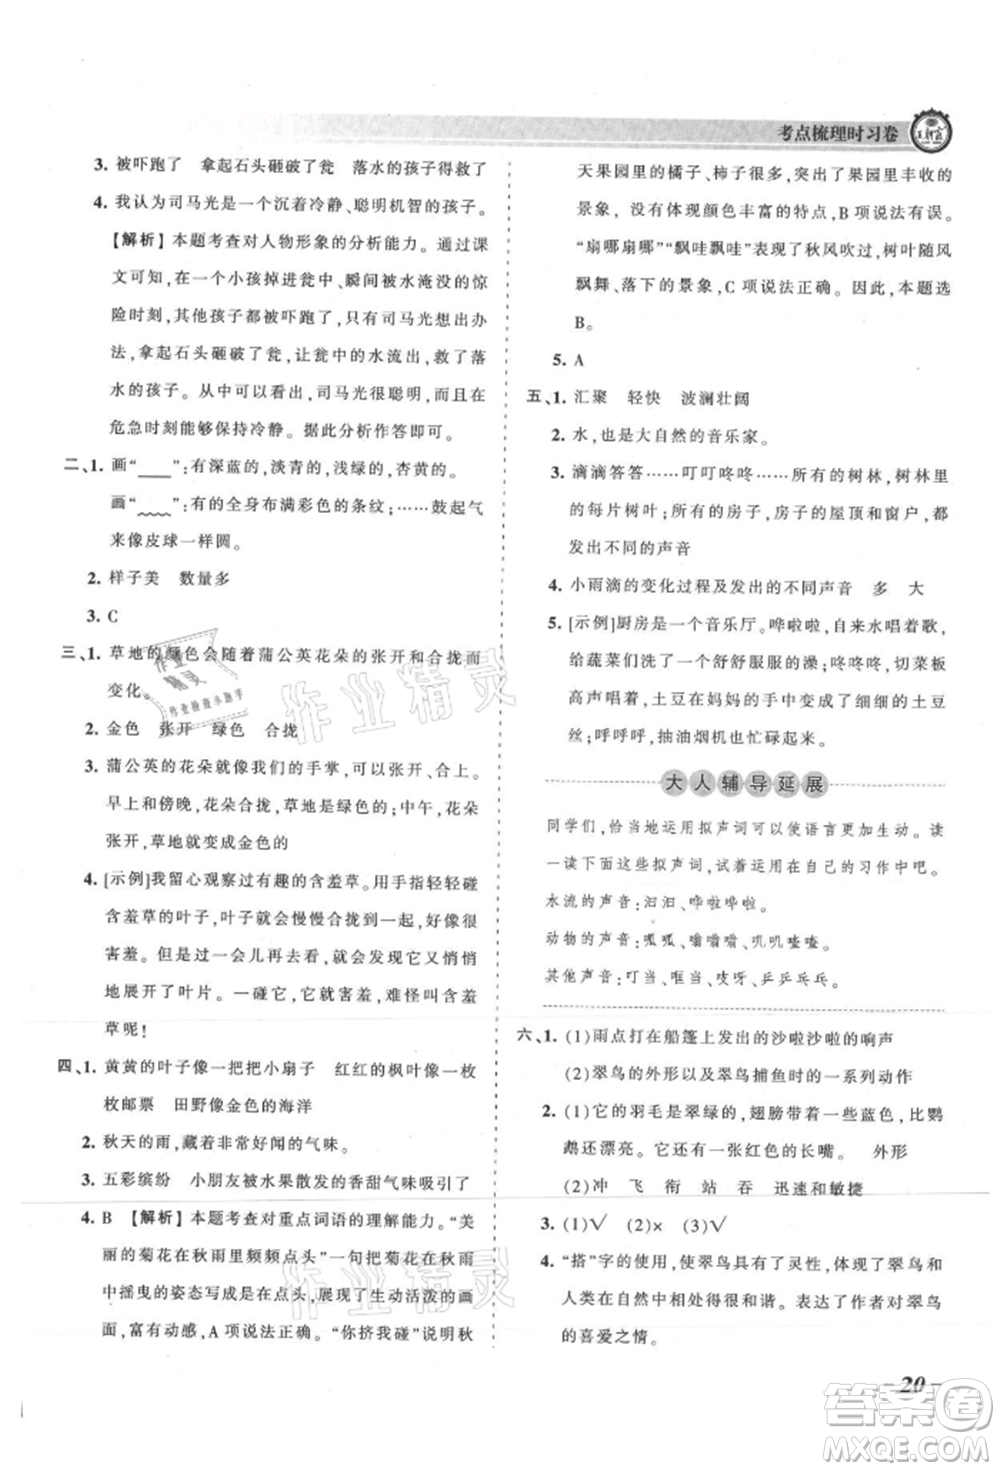 考点梳理时习卷
3. 被吓跑了　拿起石头砸破了瓮　落水的孩子得救了
4. 我认为司马光是一个沉着冷静、聪明机智的孩子。
【解析】本题考查对人物形象的分析能力。通过课
文可知，在一个小孩掉进瓮中，瞬间被水淹没的惊
险时刻，其他孩子都被吓跑了，只有司马光想出办
法，拿起石头砸破了瓮，让瓮中的水流出，救了落
水的孩子。从中可以看出，司马光很聪明，而且在
危急时刻能够保持冷静。据此分析作答即可。
二、1. 画“____”:有深蓝的，淡青的，浅绿的，杏黄的。
画“﹏﹏”:有的全身布满彩色的条纹；……鼓起气
来像皮球一样圆。
2. 样子美　数量多
3. C
三、1. 草地的颜色会随着蒲公英花朵的张开和合拢而
变化。
2. 金色　张开　绿色　合拢
3. 蒲公英的花朵就像我们的手掌，可以张开、合上。
早上和傍晚，花朵合拢，草地是绿色的；中午，花朵
张开，草地就变成金色的了。
4. [示例]我留心观察过有趣的含羞草。用手指轻轻碰
含羞草的叶子，叶子就会慢慢合拢在一起，好像很
害羞。但是，过了一会儿再去看时，发现它又悄悄
地展开了叶片。一碰它，它就害羞，难怪叫含羞
草呢！
四、1. 黄黄的叶子像一把把小扇子　红红的枫叶像一枚
枚邮票　田野像金色的海洋
2. 秋天的雨，藏着非常好闻的气味。
3. 五彩缤纷　小朋友被水果散发的香甜气味吸引了
4. B　【解析】本题考查对重点词语的理解能力。“美
丽的菊花在秋雨里频频点头”一句把菊花在秋雨
中摇曳的姿态写成是在点头，展现了生动活泼的画
面，富有动感，A 项说法正确。“你挤我碰”说明秋
天果园里的橘子、柿子很多，写出了果园里丰收的
景象，没有体现颜色丰富的特点，B 项说法有误。
“扇哪扇哪”“飘哇飘哇”表现了秋风吹过，树叶随风
飘舞、落下的景象，C 项说法正确。故此，本题选
B。
5. A
五、1. 汇聚　轻快　波澜壮阔
2. 水，也是大自然的音乐家。
3. 滴滴答答……叮叮咚咚……所有的树林，树林里
的每片树叶；所有的房子，房子的屋顶和窗户，都
发出不同的声音
4. 小雨滴的变化过程及发出的不同声音　多　大
5. [示例]厨房是一个音乐厅。哗啦啦，水龙头唱着歌，
给蔬菜们洗了一个舒舒服服的澡；咚咚咚，切菜刀
高声唱着，土豆在妈妈的手中变成了细细的土豆
丝；呼呼呼，抽油烟机也忙碌起来。
大人辅导延展
同学们，恰当地运用拟声词可以使语言更加生动。读
一读下面这些拟声词，试着运用到自己的习作中吧。
水流的声音：汩汩、哗啦哗啦。
动物的声音：呱呱、嗡嗡嗡、叽叽喳喳。
其他声音：叮当、哐当、吱呀、乒乒乓乓。
六、1. (1)雨点打在船篷上发出的沙啦沙啦的响声
(2)翠鸟的外形以及翠鸟捕鱼时的一系列动作
2. (1)它的羽毛是翠绿的，翅膀带着一些蓝色，比鹦
鹉还漂亮。它还有一张红色的长嘴。　外形
(2)冲　飞　衔　站　吞　迅速和敏捷
3. (1)√　(2)×　(3)√
4. “搭”字的使用，使翠鸟具有了灵性，体现了翠鸟和
人类在自然中相处得很和谐。表达了作者对翠鸟
的喜爱之情。
20
作业精灵
作业检查小助手
作业精灵
作业精灵
答案圈
MXQE.COM